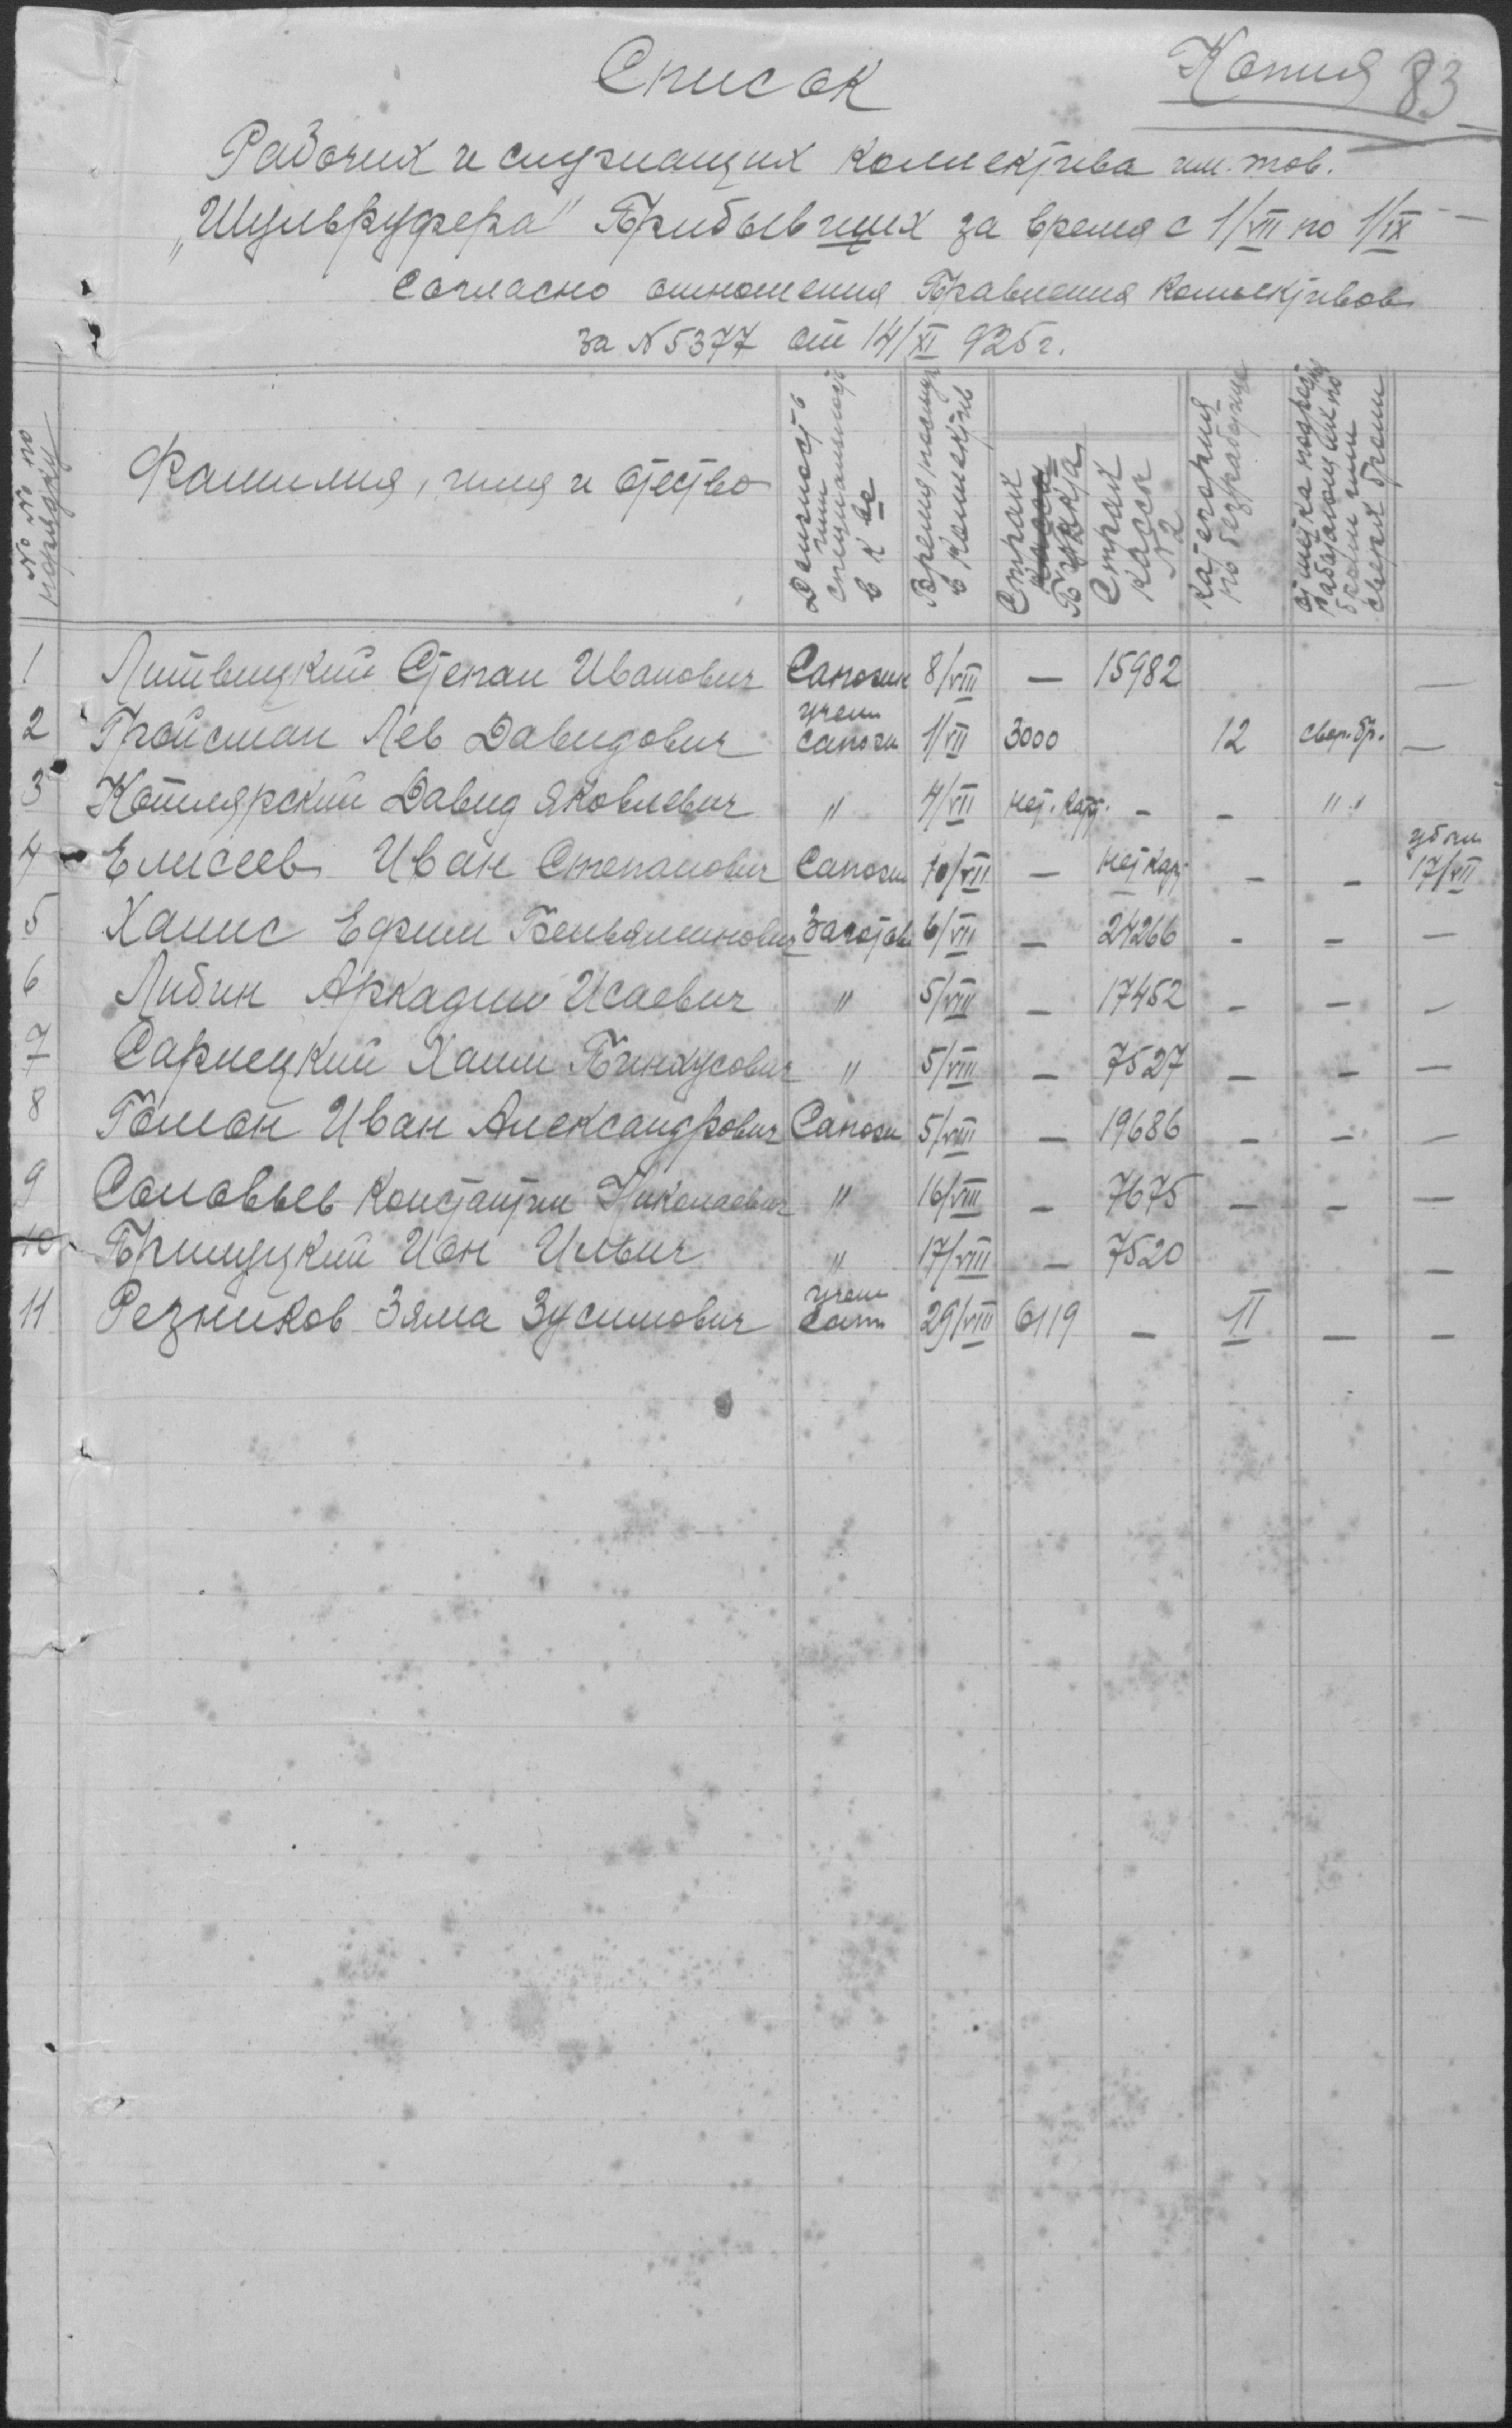 Копия 83
Список
Рабочих и служащих коллектива им. тов.
„Шульвруфера" Прибывших за время с 1/VII по 1/IX
Согласно отношения Правления Коллективов
за N 5377 от 14/XI 925 г.
№ № по порядку
Фамилия, имя и отество
Должность или специальность в к-ве
Время поступ в коллектив
Страх Пункта
Страх касса N 2
Категория по безработице
сверх брони
1 Литвицкий Степан Иванович Сапожн 8/VIII — 15982 —
2 Гройсман Лев Давидович учен сапожн 1/VII 3000 12 сверх.бр. —
3 Котлярский Давид Яковлевич " 4/VII нет. карт. — — " "
4 Елисеев Иван Степанович Сапожн 10/VII — нет карт — — убыл 17/VII
5 Хаммс Ефим Беньяминович Заготов 6/VII — 24266 — — —
6 Либин Аркадий Исаевич " 5/VIII — 17452 — — —
7 Сарнецкий Хаим Пинхусович " 5/VIII — 7527 — — —
8 Гомон Иван Александрович Сапожн 5/VIII — 19686 — — —
9 Соловьев Константин Николаевич " 16/VIII — 7675 — — —
10 Прилуцкий Ион Ильич " 17/VIII — 7520 —
11 Резников Зяма Зусимович учен Сап 29/VIII 6119 — II — —